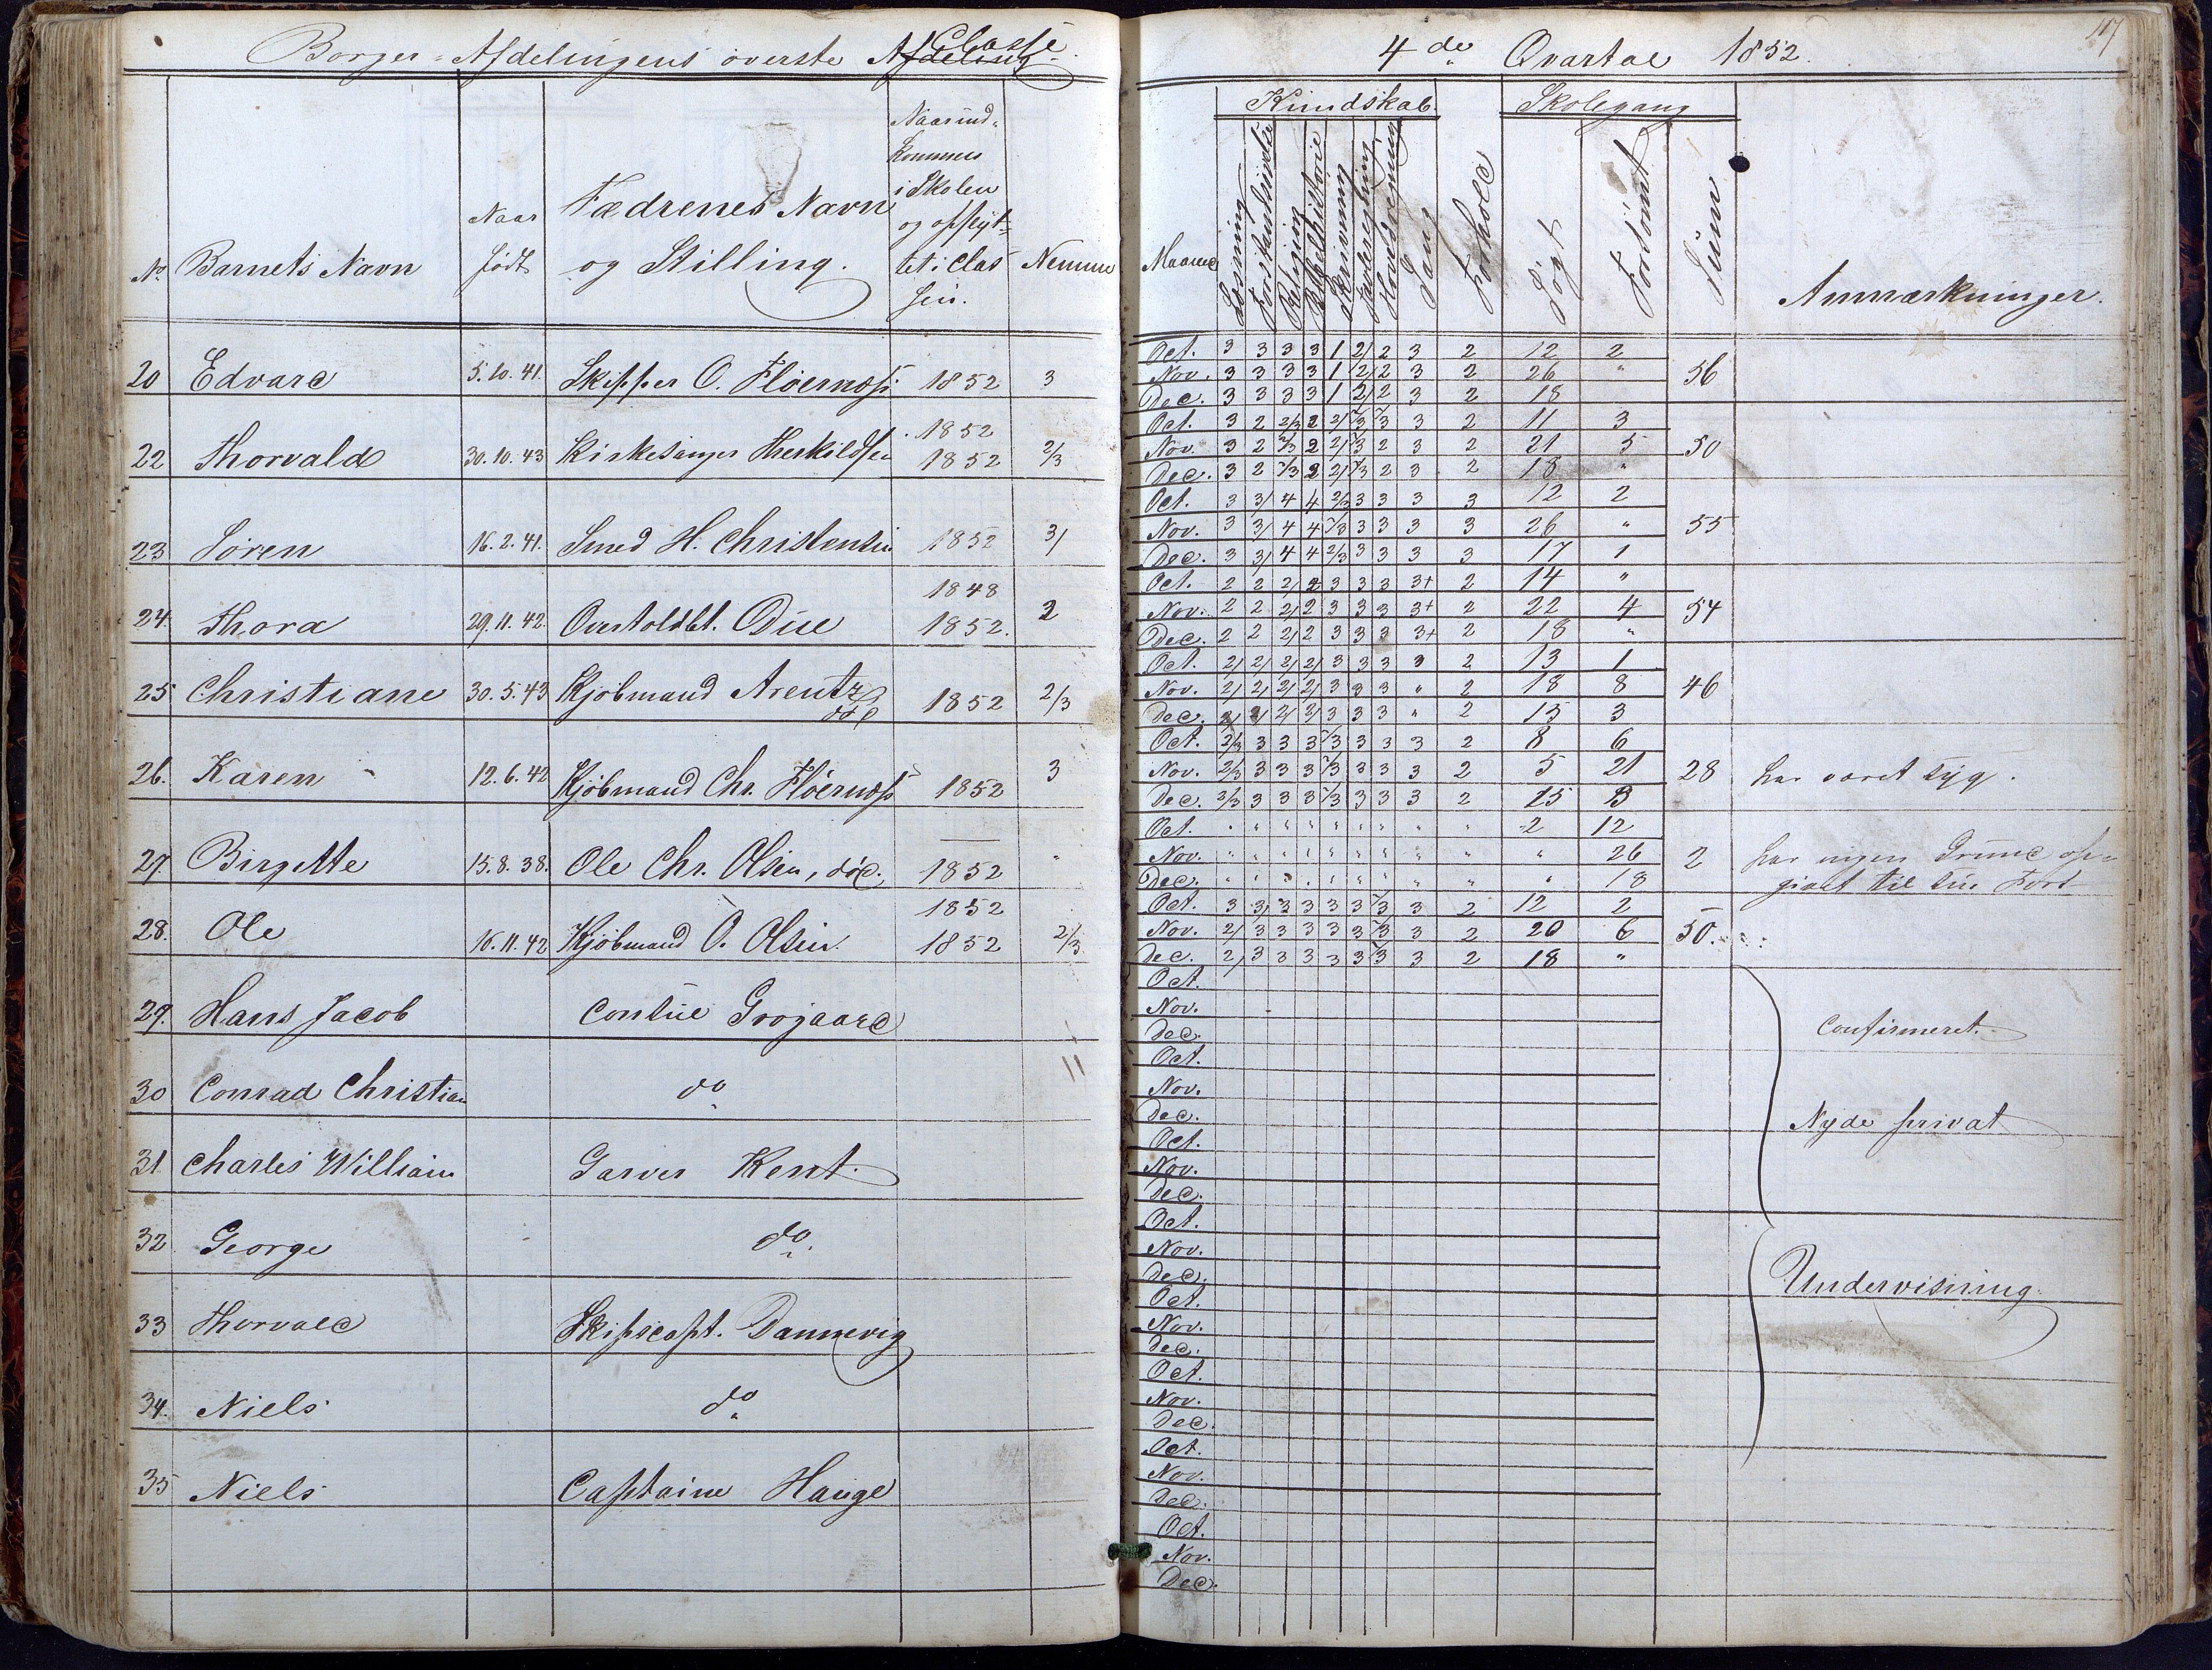 Borger-Afdelingens øverste Classe
4de Qvartal 1852.
117
No. Barnets Navn
Naar født
Fædrenes Navn og Stilling.
Naar ind-
kommen
i Skolen
og opflyt-
tet i Clas
sen.
Nemme
Maaned
Kundskab.
Læsning
Forstandsøvelse
Religion
Bibelhistorie
Skrivning
Tavleregning
Hovedregning
Sang
Forhold
Skolegang
Søgt
Forsømt
Sum
Anmærkninger.
20 Edvard 5.10.41. Skipper O. Fløernæss 1852 3
Oct. 3 3 3 3 1 2/ 2 3 2 12 2
Nov. 3 3 3 3 1 2/ 2 3 2 26 " 56
Dec. 3 3 3 3 1 2/ 2 3 2 18
22 Thorvald 30.10.43 Kirkesanger Therkildsen 1852 1852 2/3
Oct. 3 2 2/3 2 2/ 2/3 2/3 3 2 11 3
Nov. 3 2 2/3 2 2/ 2/3 2 3 2 21 5 50
Dec. 3 2 2/3 2 2/ 2/3 2 3 2 18 "
23 Søren 16.2.41. Smed H. Christensen 1852 3/
Oct. 3 3/ 4 4 2/3 3 3 3 3 12 2
Nov. 3 3/ 4 4 2/3 3 3 3 3 26 " 55
Dec. 3 3/ 4 4 2/3 3 3 3 3 17 1
24. Thora 29.11.42. Overtoldbt. Due 1848 1852. 2
Oct. 2 2 2/ 2 3 3 3 3+ 2 14 "
Nov. 2 2 2/ 2 3 3 3 3+ 2 22 4 54
Dec. 2 2 2/ 2 3 3 3 3+ 2 18 "
25 Christiane 30.5.43 Kjøbmand Arentz død 1852 2/3
Oct. 2/ 2/ 2/ 2/ 3 3 3 3 2 13 1
Nov. 2/ 2/ 2/ 2/ 3 3 3 " 2 18 8 46
Dec. 2/ 2/ 2/ 2/ 3 3 3 " 2 15 3
26. Karen 12.6.42 Kjøbmand Chr. Fløernæss 1852 3
Oct. 2/3 3 3 3 2/3 3 3 3 2 8 6
Nov. 2/3 3 3 3 2/3 3 3 3 2 5 21 28 har været syg.
Dec. 2/3 3 3 3 2/3 3 3 3 2 15 3
27. Birgitte 15.8.38. Ole Chr. Olsen, død. 1852 "
Oct. " " " " " " " " " 2 12
Nov. " " " " " " " " " " 26 2 har ingen Grund op-
Dec. " " " " " " " " " " 18 givet til sin Fors-
28. Ole 16.11.42 Kjøbmand O. Olsen. 1852 1852 2/3
Oct. 3 3/ 3 3 3 3 2/3 3 2 12 2
Nov. 2/ 3 3 3 3 3 2/3 3 2 20 6 50.
Dec. 2/ 3 3 3 3 3 2/3 3 2 18 "
29. Hans Jacob Consul Grøgaard
Oct.
Nov. Confirmeret.
Dec.
30 Conrad Christian do
Oct.
Nov.
Dec. Nyde privat
31 Charles William Garver Kent.
Oct.
Nov.
Dec.
32 George do.
Oct.
Nov.
Dec. Undervisning
33 Thorvald Skipscapt. Dannevig
Oct.
Nov.
Dec.
34. Niels do
Oct.
Nov.
Dec.
35 Niels Captaine Hauge
Oct.
Nov.
Dec.
Oct.
Nov.
Dec.